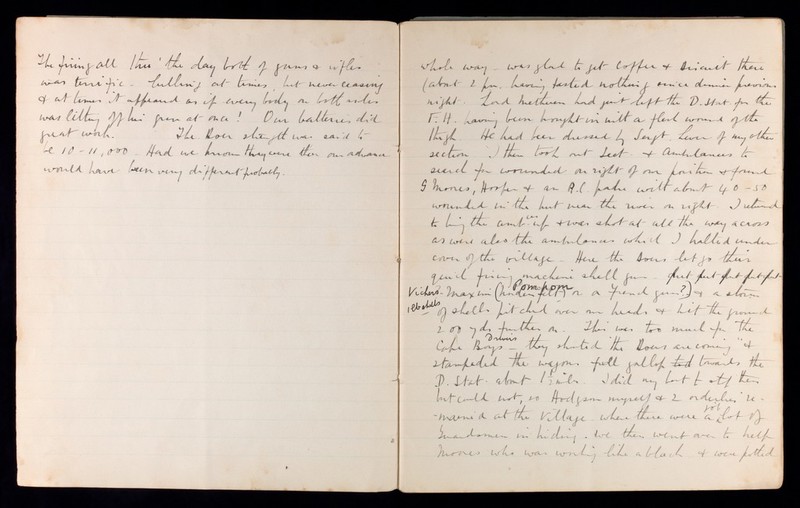 The firing all thro' the day both of guns & rifles
was terrific. lulling at times, but never ceasing
& at times it appeared as if every body on both sides
was letting off his gun at once! Our batteries did
great work. The Boer strength was said to
be 10 - 11,000. Had we known they were there our advance
would have been very different probably.
whole way - was glad to get Coffee & Biscuit there
(about 2 pm, having tasted nothing since dinner previous
night. Lord Methuen had just left the D. Stat for the
F. H. having been brought in with a flesh wound of the
thigh He had been dressed by Sergt of my other
section. I then took out Sect & Ambulances to
search for wounded on right of our position & found
G Moores, Hooper & an R.C. padre with about 40 - 50
wounded in the hut near the river on right. I returned
to bring the amb up & was shot at all the way across
as were also the ambulances which I halted under
cover of the village - Here the Boers let go their
quick firing machine shell gun - put put put put put
Vickers-Maxim Pompom (Nordenfelt) or a French gun?) & a storm
1 lb shells
of shells pitched over our heads & hit the ground
200 yds further on. This was too much for the
Cape Boys Drivers - they shouted "the Boers are coming" &
stampeded the wagons full gallop towards the
D. Stat. about 1½ mile. I did my best to stop them
but could not, so Hodgson myself & 2 orderlies re-
-mained at the Village where there were a lot of
Guardsmen in hiding. We then went over to help
Moores who was working like a black & were potted